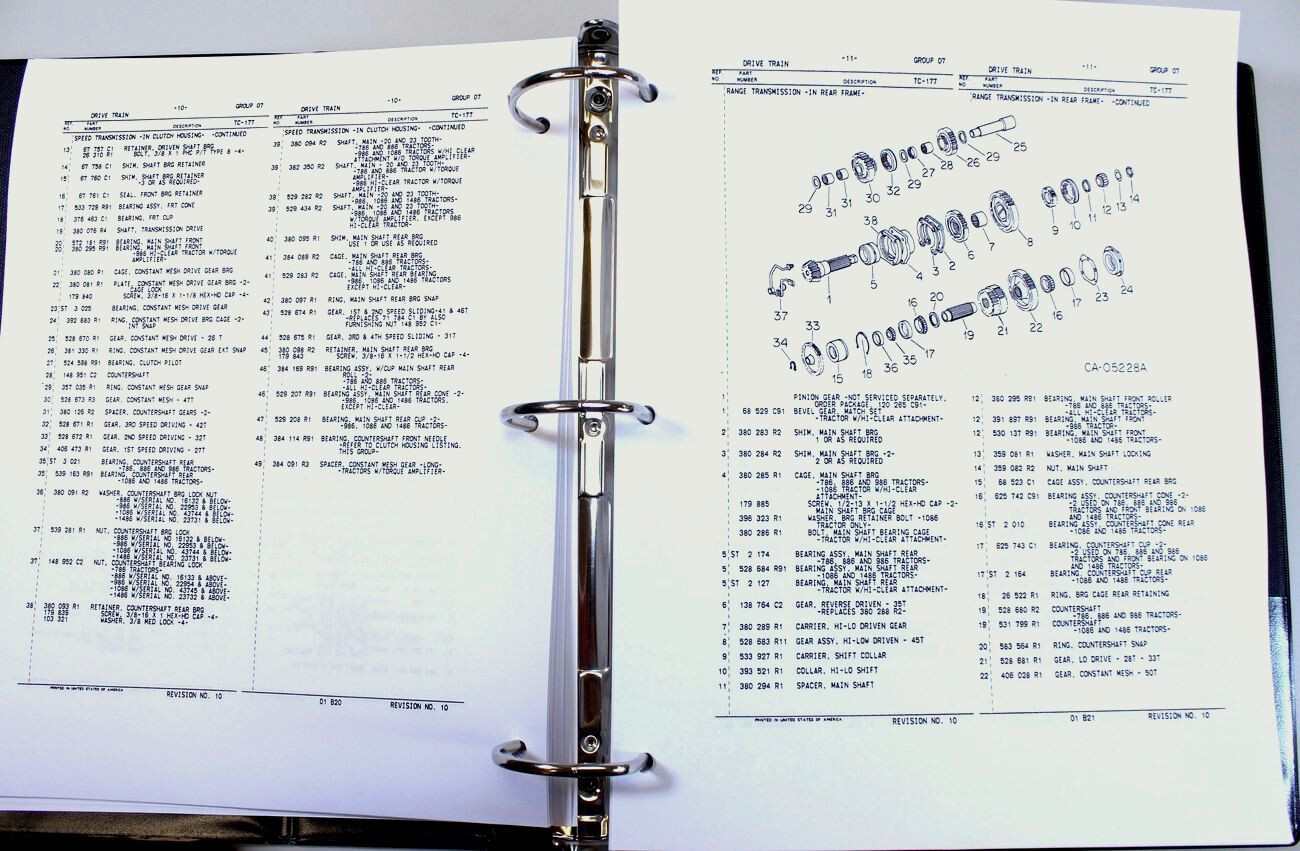 DRIVE TRAIN -10- GROUP 07
REF. NO. PART NUMBER DESCRIPTION TC-177
SPEED TRANSMISSION -IN CLUTCH HOUSING- -CONTINUED
13 67 757 C1 RETAINER, DRIVEN SHAFT BRG
26 310 R1 BOLT, 3/8 X 1 PHC P/T TYPE 8 -4-
14 67 758 C1 SHIM, SHAFT BRG RETAINER
15 67 760 C1 SHIM, SHAFT BRG RETAINER
-3 OR AS REQUIRED-
16 67 761 C1 SEAL, FRONT BRG RETAINER
17 533 729 R91 BEARING ASSY, FRT CONE
18 376 463 C1 BEARING, FRT CUP
19 380 076 R4 SHAFT, TRANSMISSION DRIVE
20 572 181 R91 BEARING, MAIN SHAFT FRONT
20 380 295 R91 BEARING, MAIN SHAFT FRONT
-986 HI-CLEAR TRACTOR W/TORQUE
AMPLIFIER-
21 380 080 R1 CAGE, CONSTANT MESH DRIVE GEAR BRG
22 380 081 R1 PLATE, CONSTANT MESH DRIVE GEAR BRG -2-
CAGE LOCK
179 840 SCREW, 3/8-16 X 1-1/8 HEX-HD CAP -4-
23 ST 3 025 BEARING, CONSTANT MESH DRIVE GEAR
24 392 683 R1 RING, CONSTANT MESH DRIVE BRG CAGE -2-
INT SNAP
25 528 670 R1 GEAR, CONSTANT MESH DRIVE - 26 T
26 381 330 R1 RING, CONSTANT MESH DRIVE GEAR EXT SNAP
27 524 598 R91 BEARING, CLUTCH PILOT
28 148 951 C2 COUNTERSHAFT
29 357 035 R1 RING, CONSTANT MESH GEAR SNAP
30 528 673 R3 GEAR, CONSTANT MESH - 47T
31 380 126 R2 SPACER, COUNTERSHAFT GEARS -2-
32 528 671 R1 GEAR, 3RD SPEED DRIVING - 42T
33 528 672 R1 GEAR, 2ND SPEED DRIVING - 32T
34 406 473 R1 GEAR, 1ST SPEED DRIVING - 27T
35 ST 3 021 BEARING, COUNTERSHAFT REAR
-786, 886 AND 986 TRACTORS-
35 539 163 R91 BEARING, COUNTERSHAFT REAR
-1086 AND 1486 TRACTORS-
36 380 091 R2 WASHER, COUNTERSHAFT BRG LOCK NUT
-886 W/SERIAL NO. 16132 & BELOW-
-986 W/SERIAL NO. 22953 & BELOW-
-1086 W/SERIAL NO. 43744 & BELOW-
-1486 W/SERIAL NO. 23731 & BELOW-
37 539 281 R1 NUT, COUNTERSHAFT BRG LOCK
-886 W/SERIAL NO 16132 & BELOW-
-986 W/SERIAL NO. 22953 & BELOW-
-1086 W/SERIAL NO. 43744 & BELOW-
-1486 W/SERIAL NO. 23731 & BELOW-
37 148 952 C2 NUT, COUNTERSHAFT BEARING LOCK
-786 TRACTORS-
-886 W/SERIAL NO. 16133 & ABOVE-
-986 W/SERIAL NO. 22954 & ABOVE-
-1086 W/SERIAL NO. 43745 & ABOVE-
-1486 W/SERIAL NO. 23732 & ABOVE-
38 380 093 R1 RETAINER, COUNTERSHAFT REAR BRG
179 839 SCREW, 3/8-16 X 1 HEX-HD CAP -4-
103 321 WASHER, 3/8 MED LOCK -4-
PRINTED IN UNITED STATES OF AMERICA REVISION NO. 10
DRIVE TRAIN -10- GROUP 07
REF. NO. PART NUMBER DESCRIPTION TC-177
SPEED TRANSMISSION -IN CLUTCH HOUSING- -CONTINUED
39 380 094 R2 SHAFT, MAIN -20 AND 23 TOOTH-
-786 AND 886 TRACTORS-
-986 AND 1086 TRACTORS W/HI CLEAR
ATTACHMENT W/O TORQUE AMPLIFIER-
39 382 350 R2 SHAFT, MAIN - 20 AND 23 TOOTH-
-786 AND 886 TRACTORS W/TORQUE
AMPLIFIER-
-986 HI-CLEAR TRACTOR W/TORQUE
AMPLIFIER-
39 529 282 R2 SHAFT, MAIN -20 AND 23 TOOTH-
-986, 1086 AND 1486 TRACTORS-
39 529 434 R2 SHAFT, MAIN -20 AND 23 TOOTH-
-986, 1086 AND 1486 TRACTORS
W/TORQUE AMPLIFIER, EXCEPT 986
HI-CLEAR TRACTOR-
40 380 095 R1 SHIM, MAIN SHAFT REAR BRG
USE 1 OR USE AS REQUIRED
41 384 089 R2 CAGE, MAIN SHAFT REAR BRG
-786 AND 886 TRACTORS-
-ALL HI-CLEAR TRACTORS-
41 529 283 R2 CAGE, MAIN SHAFT REAR BEARING
-986, 1086 AND 1486 TRACTORS
EXCEPT HI-CLEAR-
42 380 097 R1 RING, MAIN SHAFT REAR BRG SNAP
43 528 674 R1 GEAR, 1ST & 2ND SPEED SLIDING-41 & 46T
-REPLACES 71 784 C1 BY ALSO
FURNISHING NUT 148 952 C1-
44 528 675 R1 GEAR, 3RD & 4TH SPEED SLIDING - 31T
45 380 098 R2 RETAINER, MAIN SHAFT REAR BRG
179 843 SCREW, 3/8-16 X 1-1/2 HEX-HD CAP -4-
46 384 169 R91 BEARING ASSY, W/CUP MAIN SHAFT REAR
ROLL -2-
-786 AND 886 TRACTORS-
-ALL HI-CLEAR TRACTORS-
46 529 207 R91 BEARING ASSY, MAIN SHAFT REAR CONE -2-
-986, 1086 AND 1486 TRACTORS,
EXCEPT HI-CLEAR-
47 529 208 R1 BEARING, MAIN SHAFT REAR CUP -2-
-986, 1086 AND 1486 TRACTORS-
48 384 114 R91 BEARING, COUNTERSHAFT FRONT NEEDLE
-REFER TO CLUTCH HOUSING LISTING,
THIS GROUP-
49 384 091 R3 SPACER, CONSTANT MESH GEAR -LONG-
-TRACTORS W/TORQUE AMPLIFIER-
01 B20 REVISION NO. 10
DRIVE TRAIN -11- GROUP 07
REF. NO. PART NUMBER DESCRIPTION TC-177
RANGE TRANSMISSION -IN REAR FRAME-
DRIVE TRAIN -11- GROUP 07
REF. NO. PART NUMBER DESCRIPTION TC-177
RANGE TRANSMISSION -IN REAR FRAME- -CONTINUED
29 31 31 30 32 29 27 28 26 29 25
37 1 5 38 4 3 2 6 7 8 9 10 11 12 13 14
34 33 15 18 36 35 17 16 20 19 21 22 16 17 23 24
CA-05228A
PINION GEAR -NOT SERVICED SEPARATELY.
ORDER PACKAGE, 120 265 C91-
1 68 529 C91 BEVEL GEAR, MATCH SET
-TRACTOR W/HI-CLEAR ATTACHMENT-
2 380 283 R2 SHIM, MAIN SHAFT BRG
1 OR AS REQUIRED
3 380 284 R2 SHIM, MAIN SHAFT BRG -2-
2 OR AS REQUIRED
4 380 285 R1 CAGE, MAIN SHAFT BRG
-786, 886 AND 986 TRACTORS-
-1086 TRACTOR W/HI-CLEAR
ATTACHMENT-
179 885 SCREW, 1/2-13 X 1-1/2 HEX-HD CAP -2-
MAIN SHAFT BRG CAGE
396 323 R1 WASHER, BRG RETAINER BOLT -1086
TRACTOR ONLY-
380 286 R1 BOLT, MAIN SHAFT BEARING CAGE
-TRACTOR W/HI-CLEAR ATTACHMENT-
5 ST 2 174 BEARING ASSY, MAIN SHAFT REAR
-786, 886 AND 986 TRACTORS-
5 528 684 R91 BEARING ASSY, MAIN SHAFT REAR
-1086 AND 1486 TRACTORS-
5 ST 2 127 BEARING, MAIN SHAFT REAR
-TRACTOR W/HI-CLEAR ATTACHMENT-
6 138 764 C2 GEAR, REVERSE DRIVEN - 35T
-REPLACES 380 288 R2-
7 380 289 R1 CARRIER, HI-LO DRIVEN GEAR
8 528 683 R11 GEAR ASSY, HI-LOW DRIVEN - 45T
9 533 927 R1 CARRIER, SHIFT COLLAR
10 393 521 R1 COLLAR, HI-LO SHIFT
11 380 294 R1 SPACER, MAIN SHAFT
PRINTED IN UNITED STATES OF AMERICA REVISION NO. 10
12 380 295 R91 BEARING, MAIN SHAFT FRONT ROLLER
-786 AND 886 TRACTORS-
-ALL HI-CLEAR TRACTORS-
12 391 897 R91 BEARING, MAIN SHAFT FRONT
-986 TRACTOR-
12 530 137 R91 BEARING, MAIN SHAFT FRONT
-1086 AND 1486 TRACTORS-
13 359 081 R1 WASHER, MAIN SHAFT LOCKING
14 359 082 R2 NUT, MAIN SHAFT
15 68 523 C1 CAGE ASSY, COUNTERSHAFT REAR BRG
16 625 742 C91 BEARING ASSY, COUNTERSHAFT CONE -2-
-2 USED ON 786, 886 AND 986
TRACTORS AND FRONT BEARING ON 1086
AND 1486 TRACTORS-
16 ST 2 010 BEARING ASSY, COUNTERSHAFT CONE REAR
-1086 AND 1486 TRACTORS-
17 625 743 C1 BEARING, COUNTERSHAFT CUP -2-
-2 USED ON 786, 886 AND 986
TRACTORS AND FRONT BEARING ON 1086
AND 1486 TRACTORS-
17 ST 2 164 BEARING, COUNTERSHAFT CUP REAR
-1086 AND 1486 TRACTORS-
18 26 522 R1 RING, BRG CAGE REAR RETAINING
19 528 680 R2 COUNTERSHAFT
-786, 886 AND 986 TRACTORS-
19 531 799 R1 COUNTERSHAFT
-1086 AND 1486 TRACTORS-
20 583 564 R1 RING, COUNTERSHAFT SNAP
21 528 681 R1 GEAR, LO DRIVE - 28T - 33T
22 406 028 R1 GEAR, CONSTANT MESH - 50T
01 B21 REVISION NO. 10